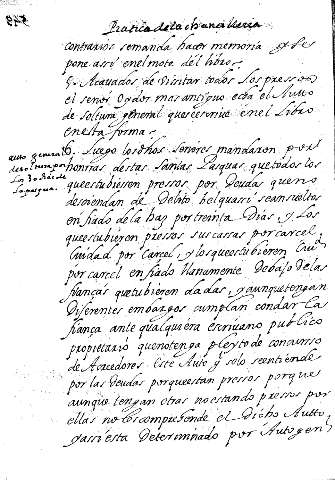 Pratica de la chancilleria
contrarios se manda hacer memoria y se les
pone assi en el mote del libro.
5. Acavados de visitar todos los pressos
el señor Oydor mas antiguo echa el Autto
de soltura general que se escrive en el Libro
en esta forma.
6. Luego los dhos señores mandaron por
honrras destas santas Pasquas que todos los
que estubiesen pressos por Deudas que no
desciendan de Delito, bel quasi sean sueltos
en fiado de la haz por treinta Dias, y los
que estubieren pressos sus cassas por carcel
Ciudad por Carcel, y los que estubieren
por carcel en fiado llanamente debajo de las
fianças que tubieren dadas, y aunque tengan
Diferentes embargos cumplan con dar la
fiança ante qualquiera escrivano publico
propietario que no tenga pleyto de concursso
de Acreedores. Este Auto y solo se entiende
por las deudas por que estan pressos porque
aunque tengan otras no estando pressos por
ellas no los comprehende el Dicho Autto
y assi esta Determinado por Auto gen
auto general
de los
la
Pasqua.